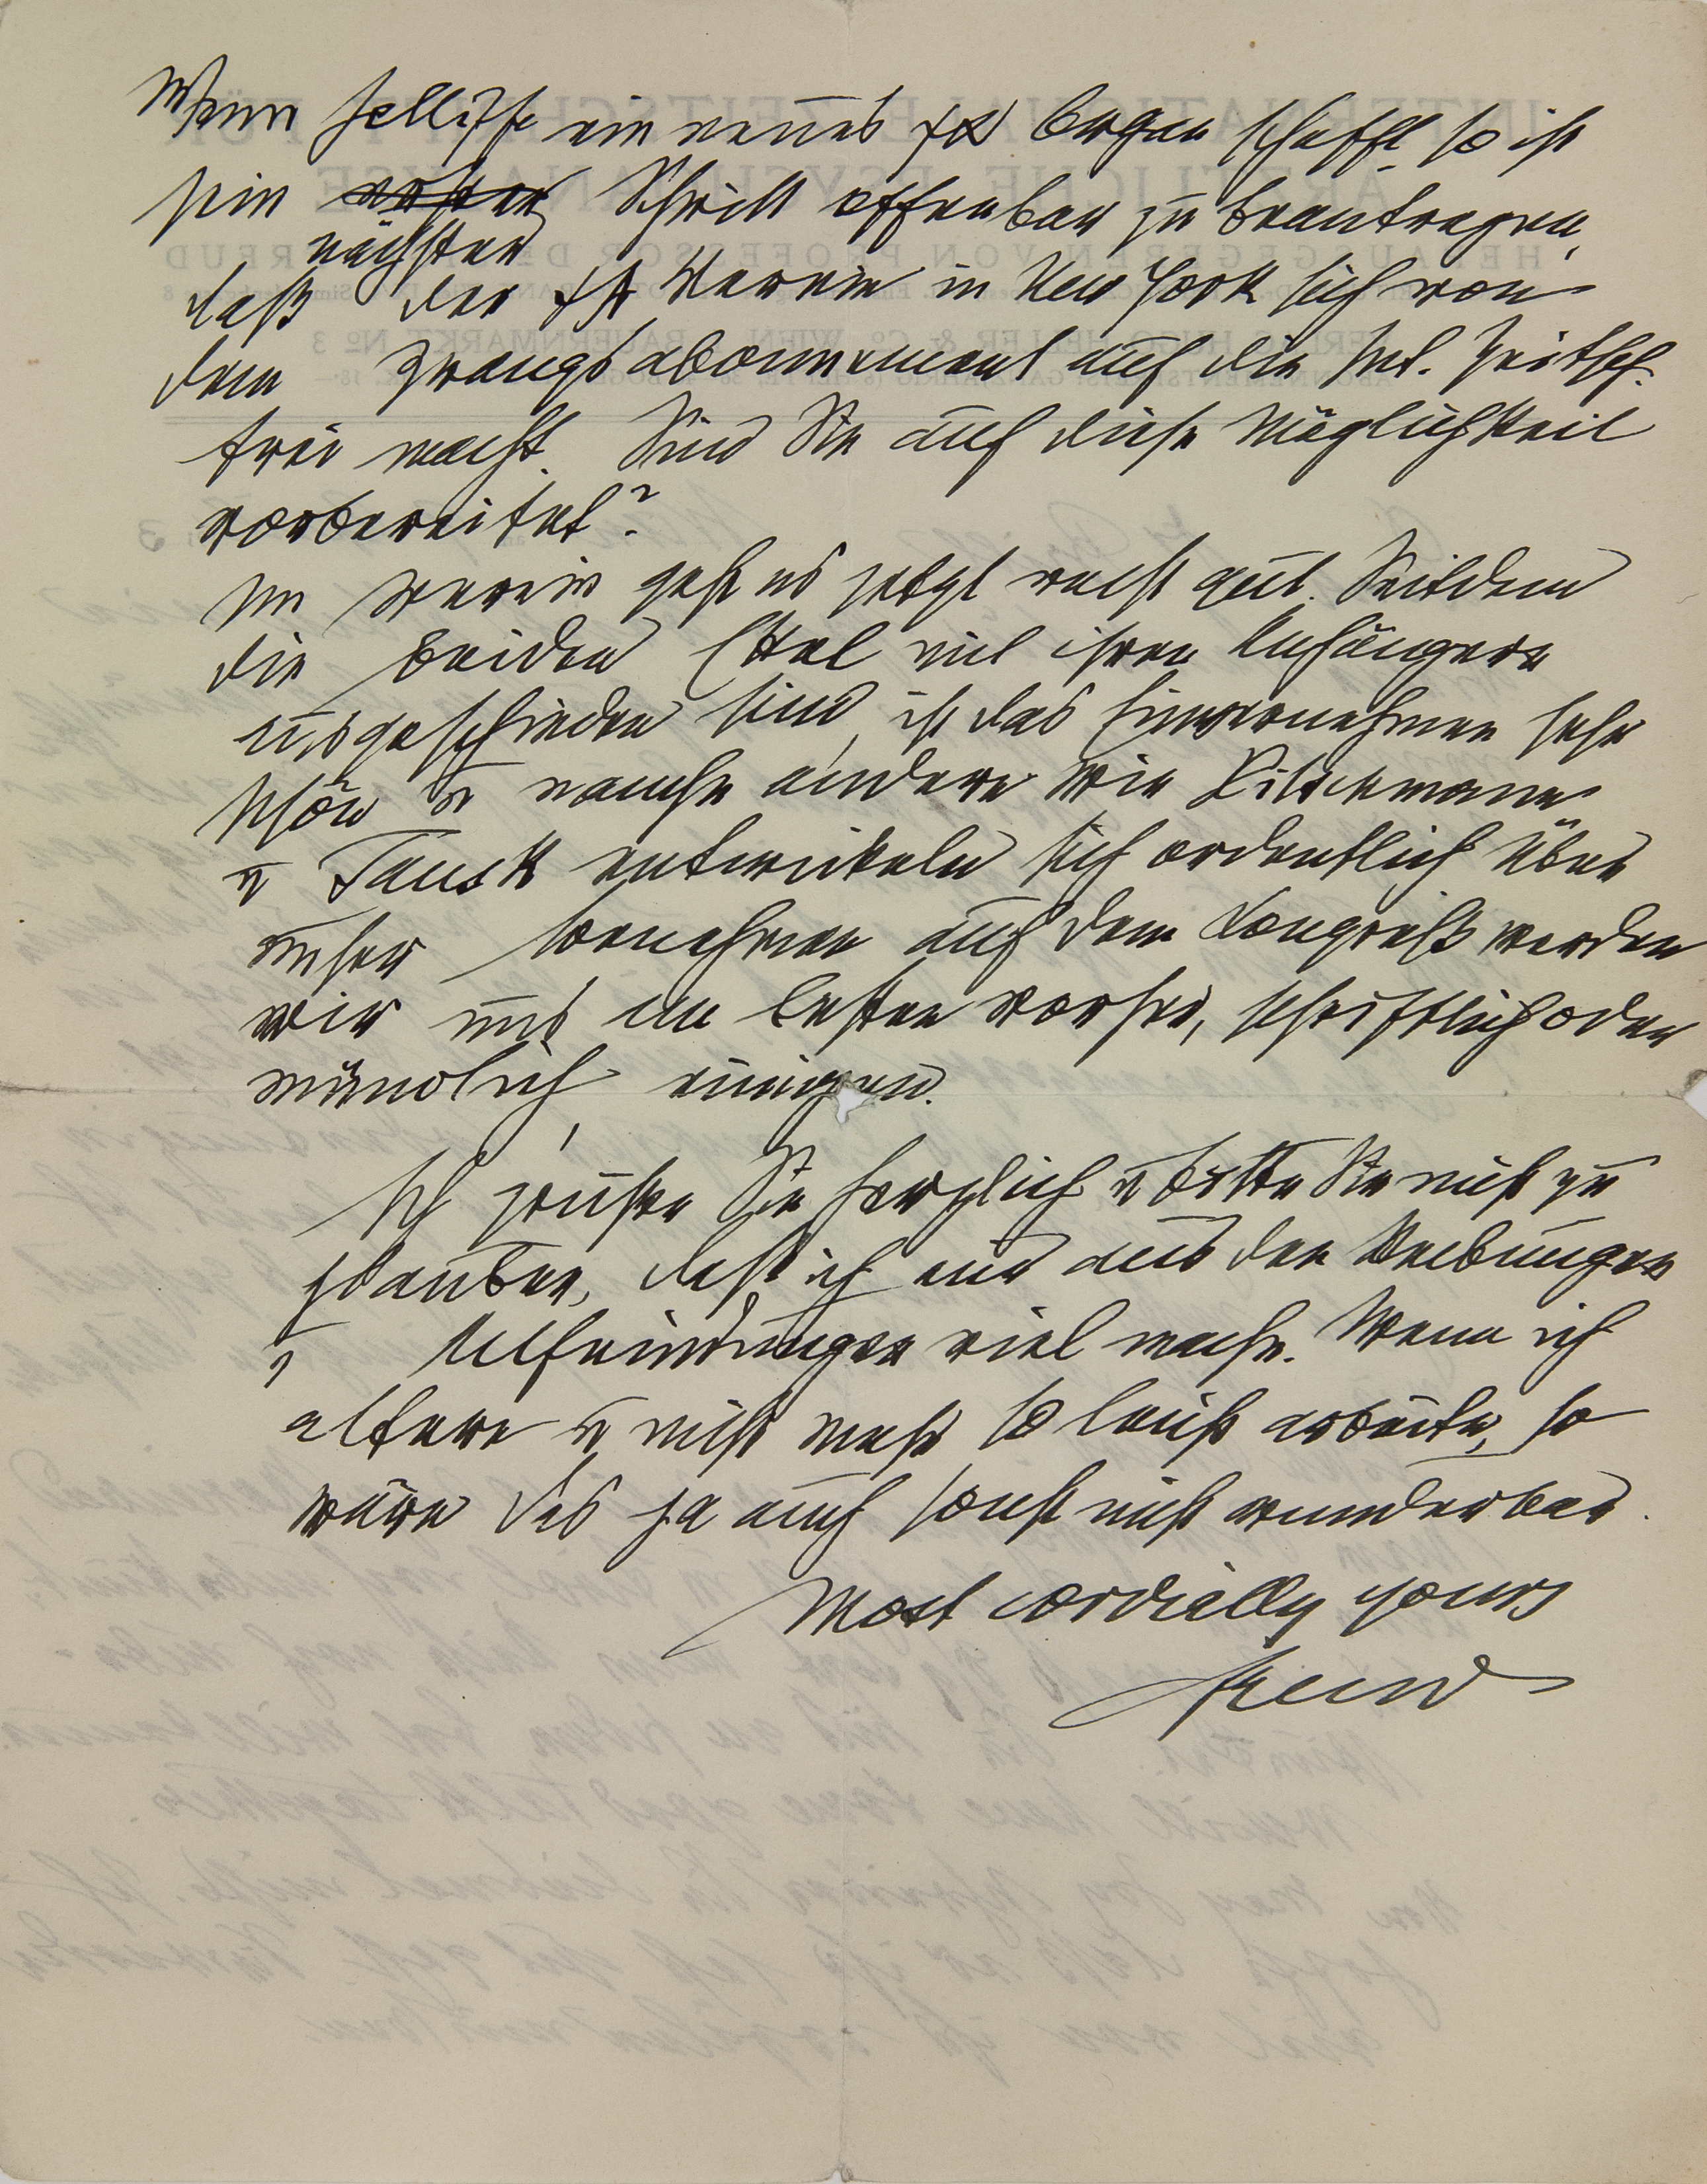 Wenn Jelliffe ein neues ΨΑ Organ schafft, so ist
sein erster Schritt offenbar zu beantragen,
nächster
daß der ΨΑ Verein in New York sich von
dem Zwangsabonnement auf die Int. Zeitsch.
frei macht. Sind Sie auf diese Möglichkeit
vorbereitet?
Im Verein geht es jetzt recht gut. Seitdem
die beiden Stekel mit ihren Anhängern
ausgeschieden sind, ist das Einvernehmen sehr
schön u manche andere wie Hitschmann
u Tausk entwickeln sich ordentlich. Über
unser Benehmen auf dem Kongreß werden
wir uns am besten vorher, schriftlich oder
mündlich, einigen.
Ich grüße Sie herzlich u bitte Sie nicht zu
glauben, daß ich mir aus den Reibungen
u Anfeindungen viel mache. Wenn ich
altere u nicht mehr so leicht arbeite, so
wäre das ja auch sonst nicht wunderbar.
Most cordially yours
Freud